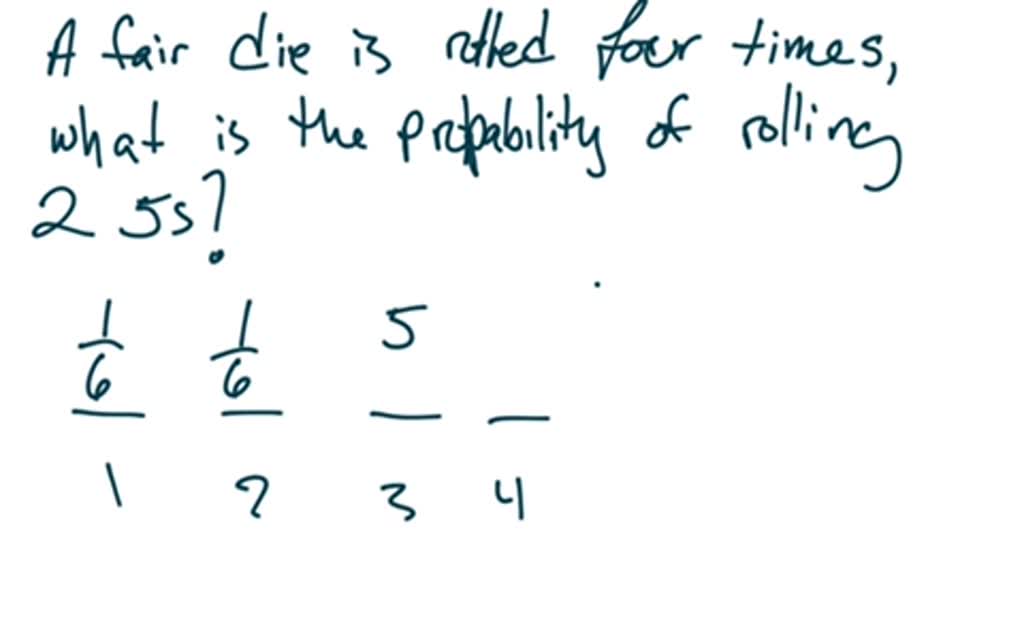 A fair die is rolled four times,
what is the probability of rolling
2 5s?
1/6 1/6 5
1 2 3 4